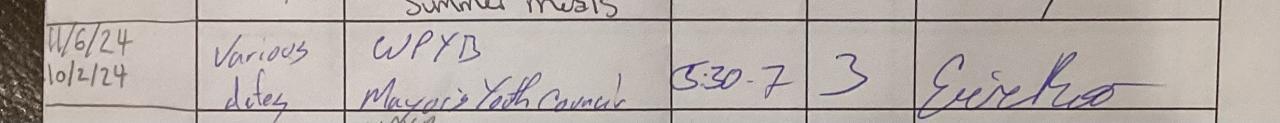 Summer meals
11/6/24
10/2/24
Various
dates
WPYB
Mayor's Youth Council
5:30-7
3